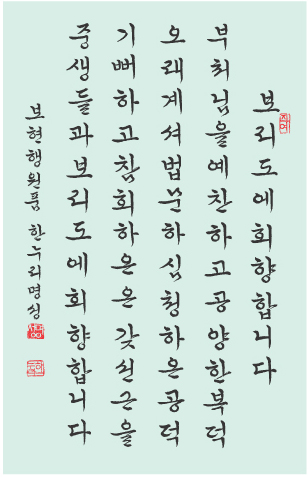 보리도에회향합니다
부처님을예찬하고공양한복덕
오래계셔법문하심청하온공덕
기뻐하고참회하온온갖선근을
중생들과보리도에회향합니다
보현행원품 한누리명상